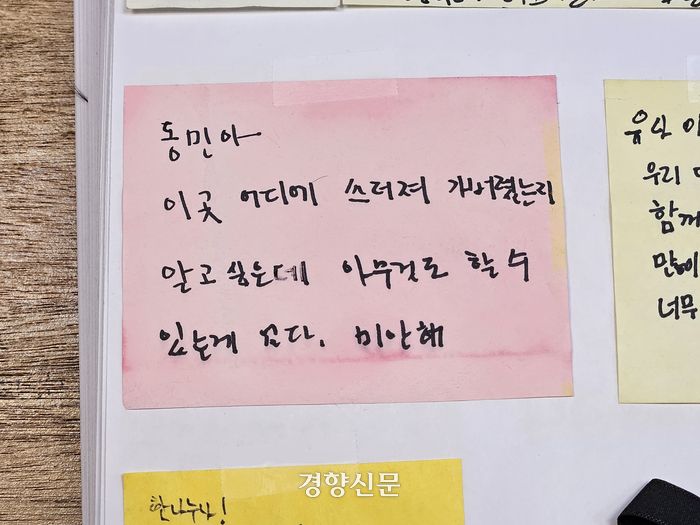 동민아
이곳 어디에 쓰러져 가버렸는지
알고 싶은데 아무것도 할 수
있는게 없다. 미안해
유
우리
함께
많이
너무
한나누나!
경향신문